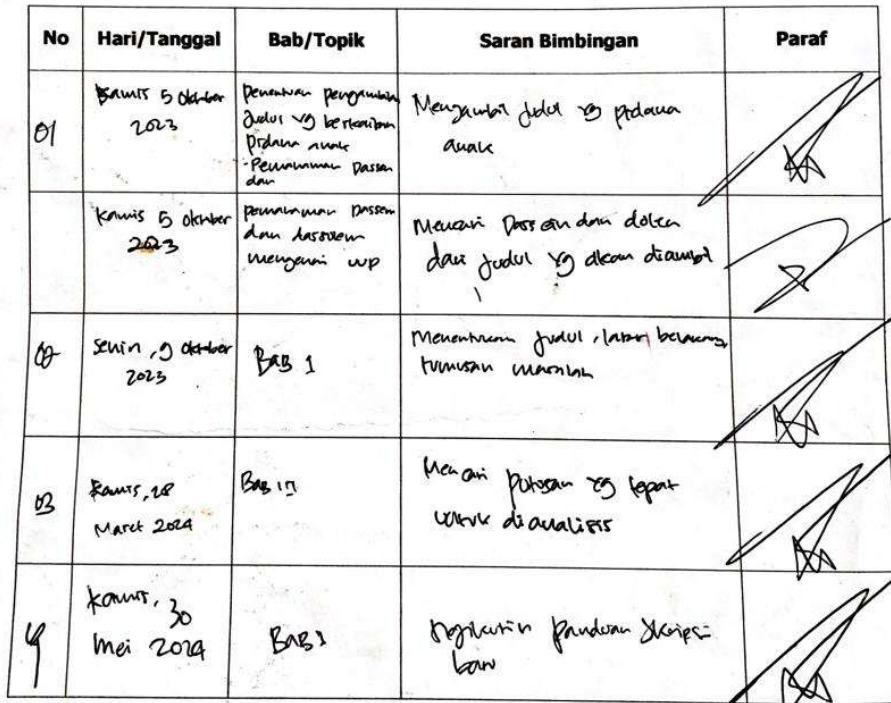 No Hari/Tanggal Bab/Topik Saran Bimbingan Paraf
01
Kamis 5 Oktober
2023
penentuan pengambilan
Judul yg berkaitan
Pidana anak
dan
Mengambil Judul yg pidana
anak
Kamis 5 Oktober
2023
mengenai
Mencari
dari Judul yg akan diambil
02
Senin, 9 Oktober
2023
BAB 1
Menentukan Judul, latar belakang,
rumusan masalah
03
Kamis, 28
Maret 2024
Mencari putusan yg tepat
untuk dianalisis
4
Kamis, 30
Mei 2024
BAB 1
panduan Skripsi
baru